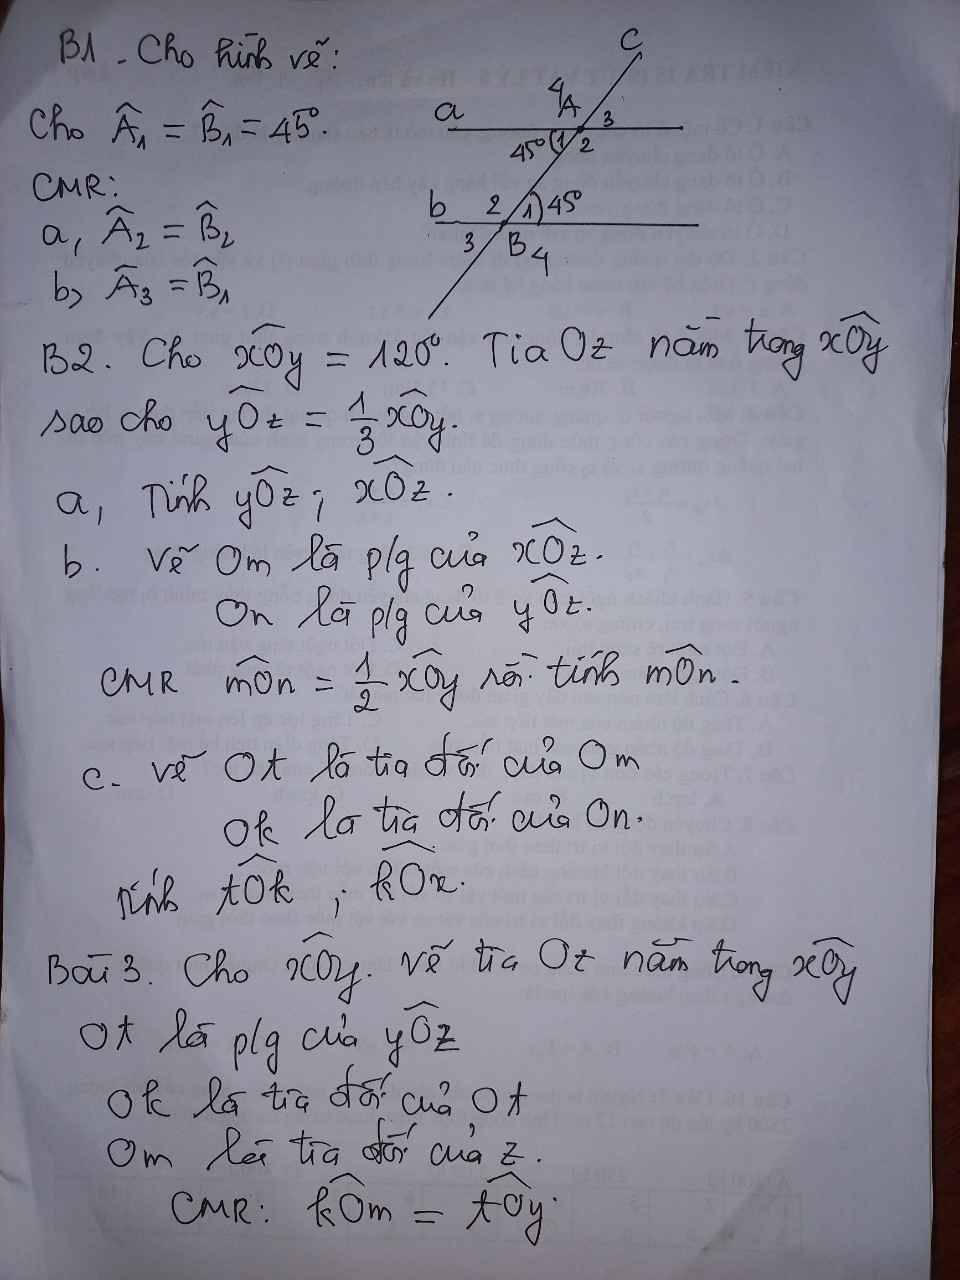 B1 - Cho hình vẽ:
Cho Â₁ = B̂₁ = 45°.
CMR:
a, Â₂ = B̂₂
b, Â₃ = B̂₁
c
a
4 A 3
45° 1 2
b 2 1 45°
3 B 4
B2. Cho xÔy = 120°. Tia Oz nằm trong xÔy
sao cho yÔz = 1/3 xÔy.
a, Tính yÔz; xÔz.
b. vẽ Om là p/g của xÔz.
On là p/g của yÔz.
CMR mÔn = 1/2 xÔy rồi tính mÔn.
c. vẽ Ot là tia đối của Om
Ok là tia đối của On.
Tính tÔk; kÔx.
Bài 3. Cho xÔy. vẽ tia Oz nằm trong xÔy
Ot là p/g của yÔz
Ok là tia đối của Ot
Om là tia đối của z.
CMR: kÔm = tÔy.